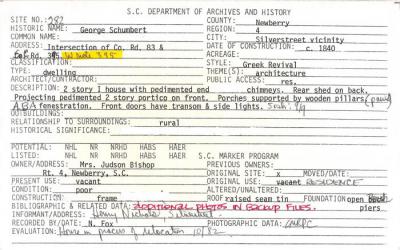 S.C. DEPARTMENT OF ARCHIVES AND HISTORY
SITE NO: 282 COUNTY: Newberry
HISTORIC NAME: George Schumbert REGION: 4
COMMON NAME: CITY: Silverstreet vicinity
ADDRESS: Intersection of Co. Rd. 83 & DATE OF CONSTRUCTION: c. 1840
Rd. 395 ACREAGE:
CLASSIFICATION: STYLE: Greek Revival
TYPE: dwelling THEME(S): architecture
ARCHITECT/CONTRACTOR: PUBLIC ACCESS: res.
DESCRIPTION: 2 story I house with pedimented end chimneys. Rear shed on back.
Projecting pedimented 2 story portico on front. Porches supported by wooden pillars
ABA fenestration. Front doors have transom & side lights. Sash: 9/9
OUTBUILDINGS:
RELATIONSHIP TO SURROUNDINGS: rural
HISTORICAL SIGNIFICANCE:
POTENTIAL: NHL NR NRHD HABS HAER
LISTED: NHL NR NRHD HABS HAER S.C. MARKER PROGRAM
OWNER/ADDRESS: Mrs. Judson Bishop PREVIOUS OWNERS:
Rt. 4, Newberry, S.C. ORIGINAL SITE: x MOVED/DATE:
PRESENT USE: vacant ORIGINAL USE: vacant RESIDENCE
CONDITION: poor ALTERED/UNALTERED:
CONSTRUCTION: frame ROOF raised seam tin FOUNDATION open brick
piers
BIBLIOGRAPHIC & RELATED DATA: ADDITIONAL PHOTOS IN BACKUP FILES.
INFORMANT/ADDRESS: Henry Nichols, Silverstreet
RECORDED BY/DATE: N. Fox PHOTOGRAPHIC DATA:
EVALUATION: House in process of relocation 10/82